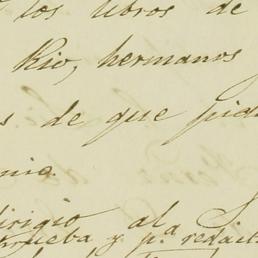 los libros de
Rio, hermanos
de que pida
dirigio al
prueba y p.ª redact